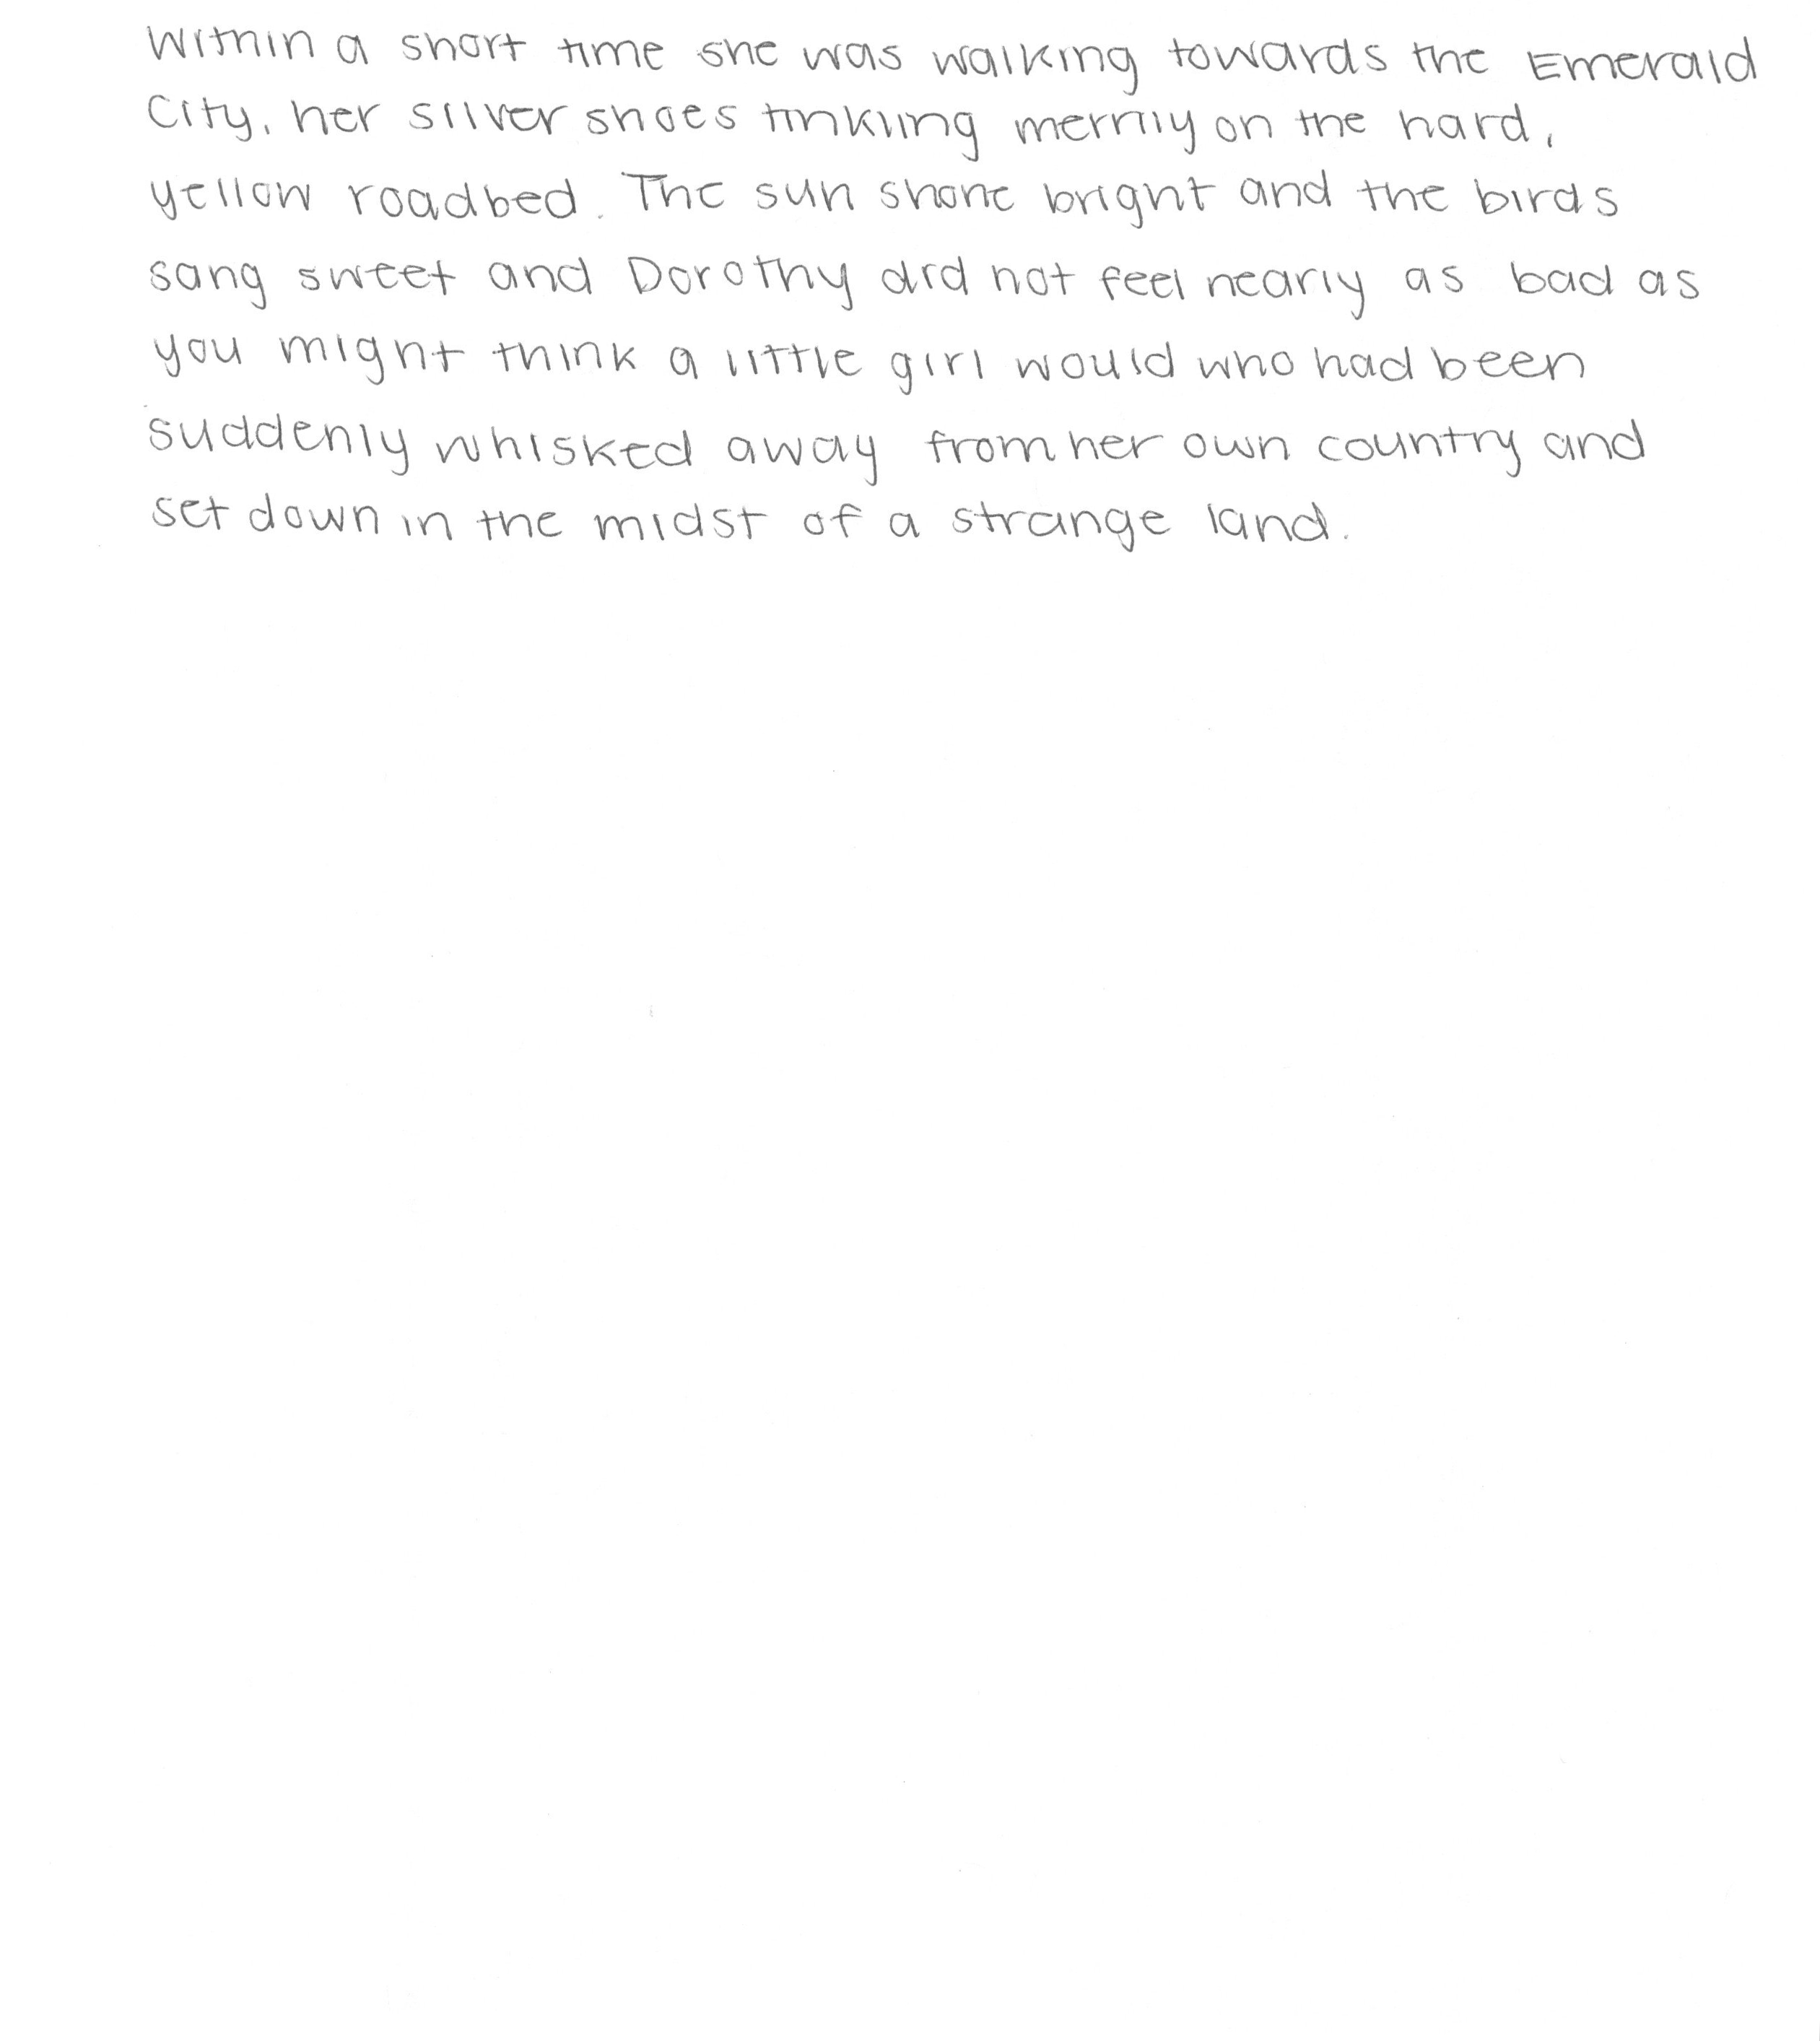 Within a short time she was walking towards the Emerald
City, her silver shoes tinkling merrily on the hard,
yellow roadbed. The sun shone bright and the birds
sang sweet and Dorothy did not feel nearly as bad as
you might think a little girl would who had been
suddenly whisked away from her own country and
set down in the midst of a strange land.